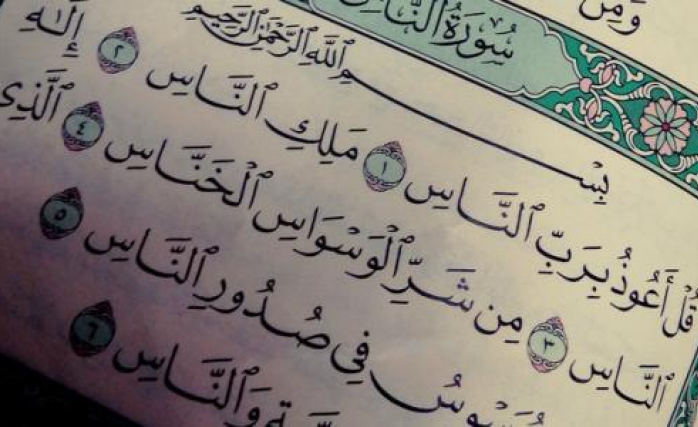 وَمِن
سُورَةُ النَّاسِ
بِسْمِ ٱللَّهِ ٱلرَّحْمَٰنِ ٱلرَّحِيمِ
قُلْ أَعُوذُ بِرَبِّ ٱلنَّاسِ ١ مَلِكِ ٱلنَّاسِ ٢ إِلَٰهِ
ٱلنَّاسِ ٣ مِن شَرِّ ٱلْوَسْوَاسِ ٱلْخَنَّاسِ ٤ ٱلَّذِى
فِى صُدُورِ ٱلنَّاسِ ٥
وَٱلنَّاسِ ٦